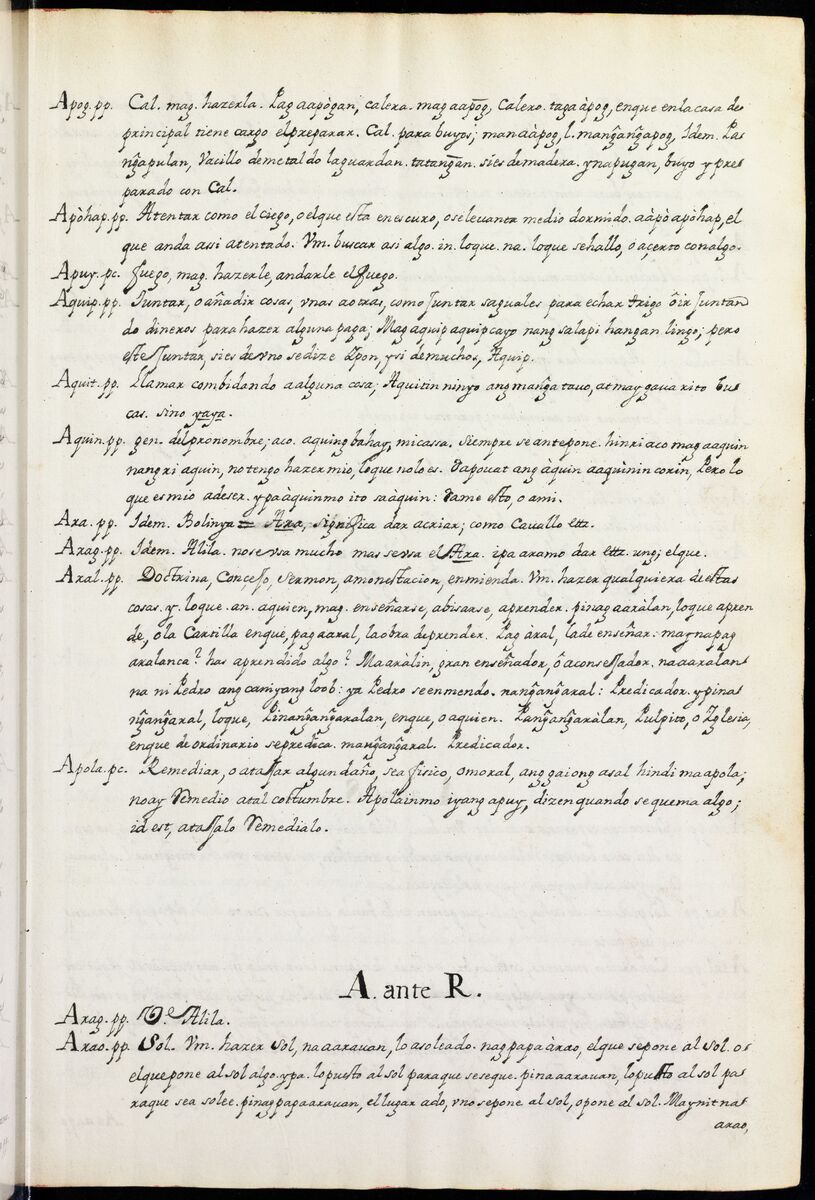 Apog. pp. Cal. mag. hazerla. Pag aapògan, calera. mag aapog, Calero. taga àpog, enque enla casa de
principal tiene cargo el preparar. Cal. para buyos; man aàpog, l. mangãngapog, Idem. Pa=
ngãpulan, Vacillo de metal do la guardan. tatangan. si es de madera. ynapugan, buyo y pre=
parado con Cal.
Apòhap. pp. Atentar como el ciego, o el que esta en escuro, o se levanta medio dormido. aàpò apòhap, el
que anda asi atentado. Vm. buscar asi algo. in. loque. na. loque se hallo, o acerto con algo.
Apuy. pc. fuego, mag. hazerle, andarle el fuego.
Aquip. pp. Juntar, o añadir cosas, vnas a otras, como Juntar saguales para echar trigo ô ir Juntan
do dineros para hazer alguna paga; Mag aquip aquip cayo nang salapi hangan lingo; pero
este Juntar, si es de vno se dize Ypon, y si de muchos, Aquip.
Aquit. pp. Llamar combidando a alguna cosa; Aquitin ninyo ang mangã tauo, at may gaua rito bu=
cas. sino yaya.
Aquin. pp. gen. del pronombre; aco. aquing bahay, mi cassa. Siempre se antepone. hinri aco mag aaquin
nang ri aquin, no tengo hazer mio, lo que no lo es. Dapouat ang àquin aaquinin corin, Pero lo
que es mio a de ser. ypa àquin mo ito sa àquin: Dame esto, o a mi.
Ara. pp. Idem. Bolinya = Ara, significa dar acriar; como Cauallo ettz.
Arag. pp. Idem. Alila. no se vsa mucho mas se vsa el Ara. ipa ara mo dar ettz. ung; el que.
Aral. pp. Doctrina, Consejo, Sermon, amonestacion, enmienda. Vm. hazer qualquiera de estas
cosas. y. loque. an. aquien, mag. enseñarse, abisarse, aprender. pinag aaràlan, loque apren
de, o la Cartilla en que, pag aaral, la obra de prender. Pag àral, la de enseñar: may napag
aralan ca? has aprendido algo? Ma aràlin, gran enseñador, ô aconsejador. na aaralan=
na ni Pedro ang caniyang loob: ya Pedro se enmendo. nangãngãral: Predicador. ypina=
ngãngãral, loque, Pinangãngãralan, enque, o aquien. Pangãngãràlan, Pulpito, o Yglesia,
enque de ordinario se predica. mangãngãral. Predicador.
Apola. pc. Remediar, o atajar algun daño, sea fisico, o moral, ang gaiong asal hindi ma apola;
no ay Remedio a tal costumbre. Apolain mo iyang apuy, dizen quando se quema algo;
id est, atajalo Remedialo.
A. ante R.
Arag. pp. Ve Alila.
Arao. pp. Sol. Vm. hazer Sol, na aarauan, lo asoleado. nag papa àrao, el que se pone al Sol. o=
el que pone al sol algo. ypa. lo puesto al sol para que se seque. pina aarauan, lo puesto al sol pa=
ra que sea solee. pinag papa arauan, el lugar ado, vno se pone al sol, o pone al sol. May nit na=
arao,